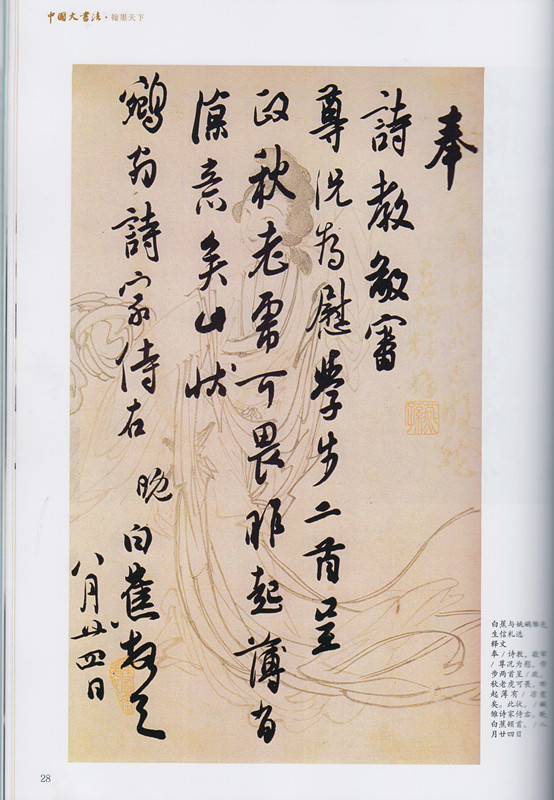 中國大書法·翰墨天下
奉
詩教敬審
尊況為慰學步二首呈
政秋老虎可畏昨起薄有
涼意矣此狀
鵷詩家侍右
晚白蕉頓首
八月廿四日
白蕉与姚鹓雏先
生信札选
释文
奉/诗教。敬审
/尊况为慰。学
步两首呈/政。
秋老虎可畏。昨
起薄有/凉意
矣。此状。/鹓
雏诗家侍右。晚
白蕉顿首。/八
月廿四日
28